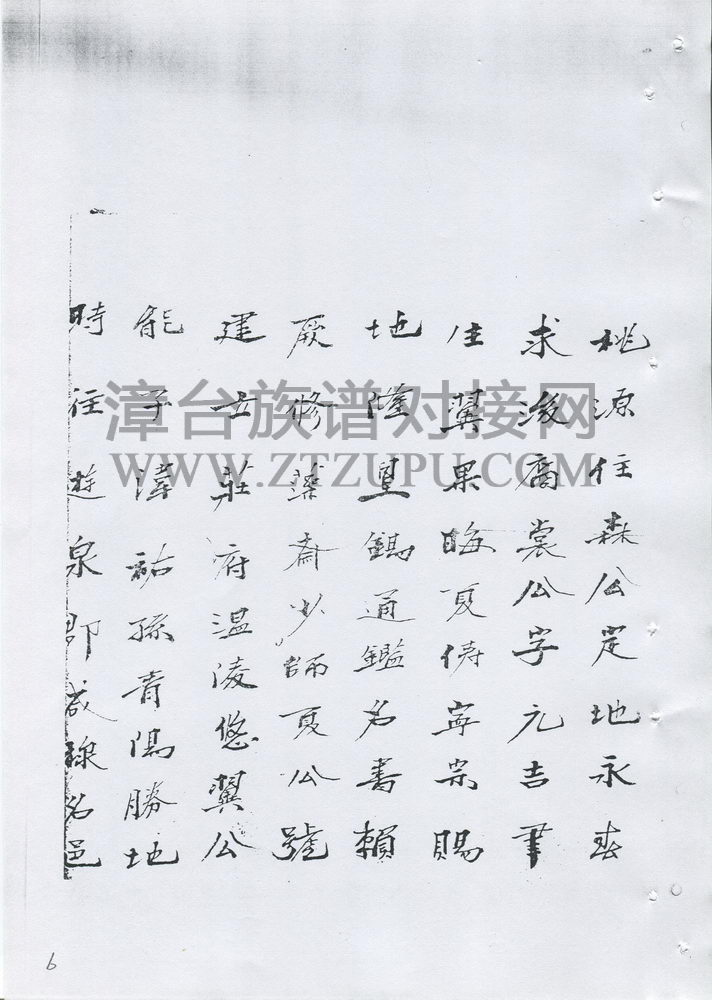 桃源住森公定地永春
求後裔裳公字元吉事
住翼果晦夏倚寧宗賜
地隆皇鶴通鑑名書賴
厥修 齋少師夏公號
建士莊府温凌悠翼公
能子津祐孫青陽勝地
時往遊泉郡咸稱名邑
漳台族谱对接网
WWW.ZTZUPU.COM
6